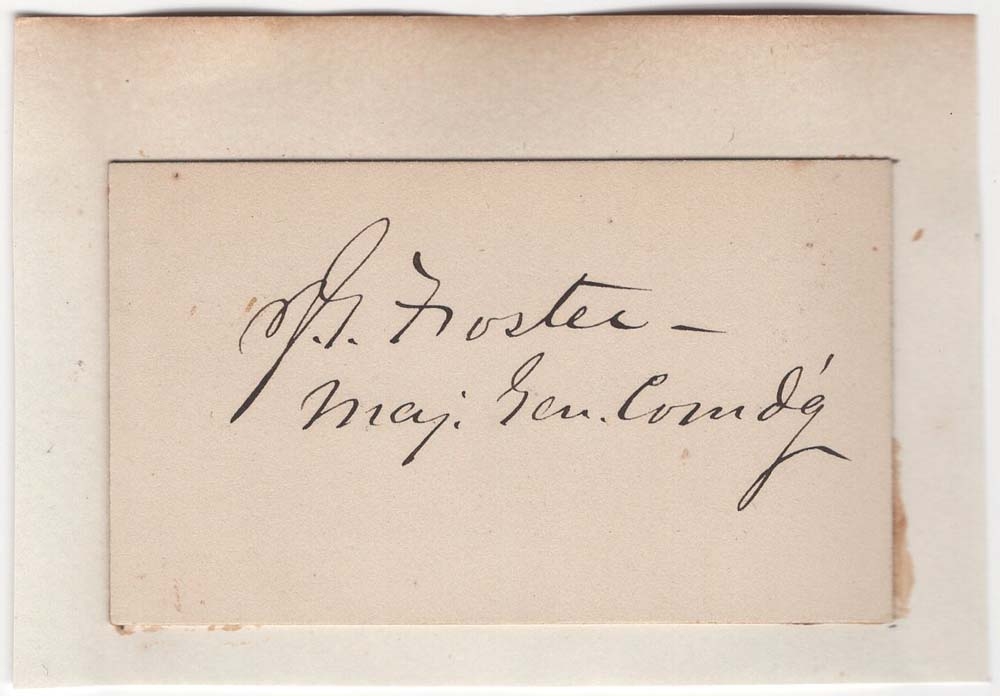 J.G. Foster –
Maj. Gen. Comd'g